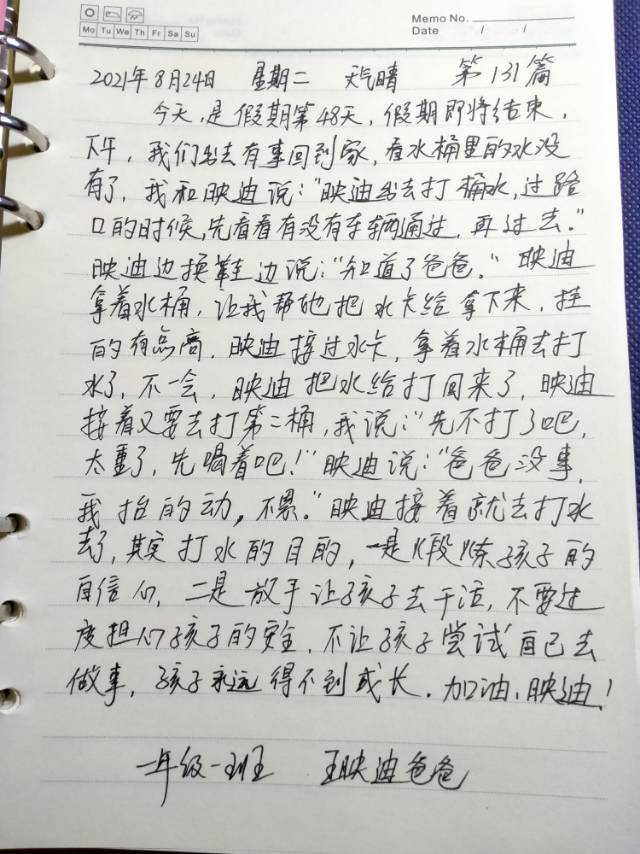 Memo No.
Mo Tu We Th Fr Sa Su
Date / /
2021年8月24日 星期二 天气晴 第131篇
今天,是假期第48天,假期即将结束,
下午,我们出去有事回到家,看水桶里的水没
有了,我和映迪说:“映迪出去打桶水,过路
口的时候,先看看有没有车辆通过,再过去。”
映迪边换鞋边说:“知道了爸爸。”映迪
拿着水桶,让我帮他把水卡给拿下来,挂
的有点高,映迪接过水卡,拿着水桶去打
水了,不一会,映迪把水给打回来了,映迪
接着又要去打第二桶,我说:“先不打了吧,
太重了,先喝着吧!”映迪说:“爸爸没事,
我抬的动,不累。”映迪接着就去打水
去了,其实打水的目的,一是段炼孩子的
自信心,二是放手让孩子去干活,不要过
度担心孩子的安全,不让孩子尝试自己去
做事,孩子永远得不到成长。加油,映迪!
一年级一班 王映迪爸爸